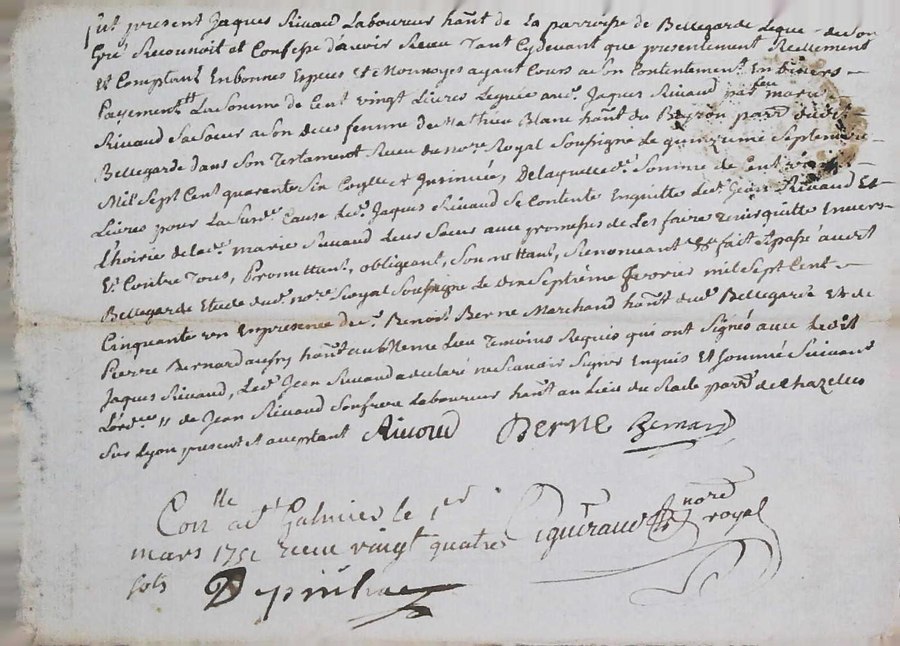 fut present Jaques Rivaud Laboureur hañt de La parroisse de Bellegarde Lequel de son
gré Reconnoit et Confesse d'avoir Receu Tant Cydevant que presentement Reellement
Et Comptant En bonnes Especes Et Monnoyes ayant Cours a son Contentement En divers
Payements La Somme de Cent vingt Livres Leguée aud. Jaques Rivaud par feu marie
Rivaud Sa Sœur a son deces femme de Mathieu Blanc hañt du parr. dudit
Bellegarde dans Son Testament Receu du no.re Royal Soussigné Le quinzieme Septembre
Mil Sept Cent quarante Six Conlle et Insinué, De laquelle d. Somme de Cent vingt
Livres pour La Susd. Cause led. Jaques Rivaud Se Contente En quitte led. Jean Rivaud Et
L'hoirie de lad. marie Rivaud Leur Sœur aux promesses de Les faire Tenir quitte Envers
Et Contre Tous, Promettant, obligeant, Soumettant, Renonceant &. fait Et passé audit
Bellegarde Etude dud. no.re Royal Soussigné Le Septième fevrier mil Sept Cent
Cinquante un En presence de S. Benoit Berne Marchand hañt dud. Bellegarde Et de
Pierre Bernard aussy hañt au Meme Lieu Temoins Requis qui ont Signés avec Ledit
Jaques Rivaud, Led. Jean Rivaud a declaré ne Scavoir Signer Enquis Et Sommé Suivant
L'ord.ce de Jean Rivaud Son frere Laboureur hañt au Lieu du parr. de Chazelles
Sur Lyon present et acceptant Rivoud BERNE Bernard
Con.lle a St Galmier le 1er
mars 1751 receu vingt quatre Eguiraud nore royal
sols